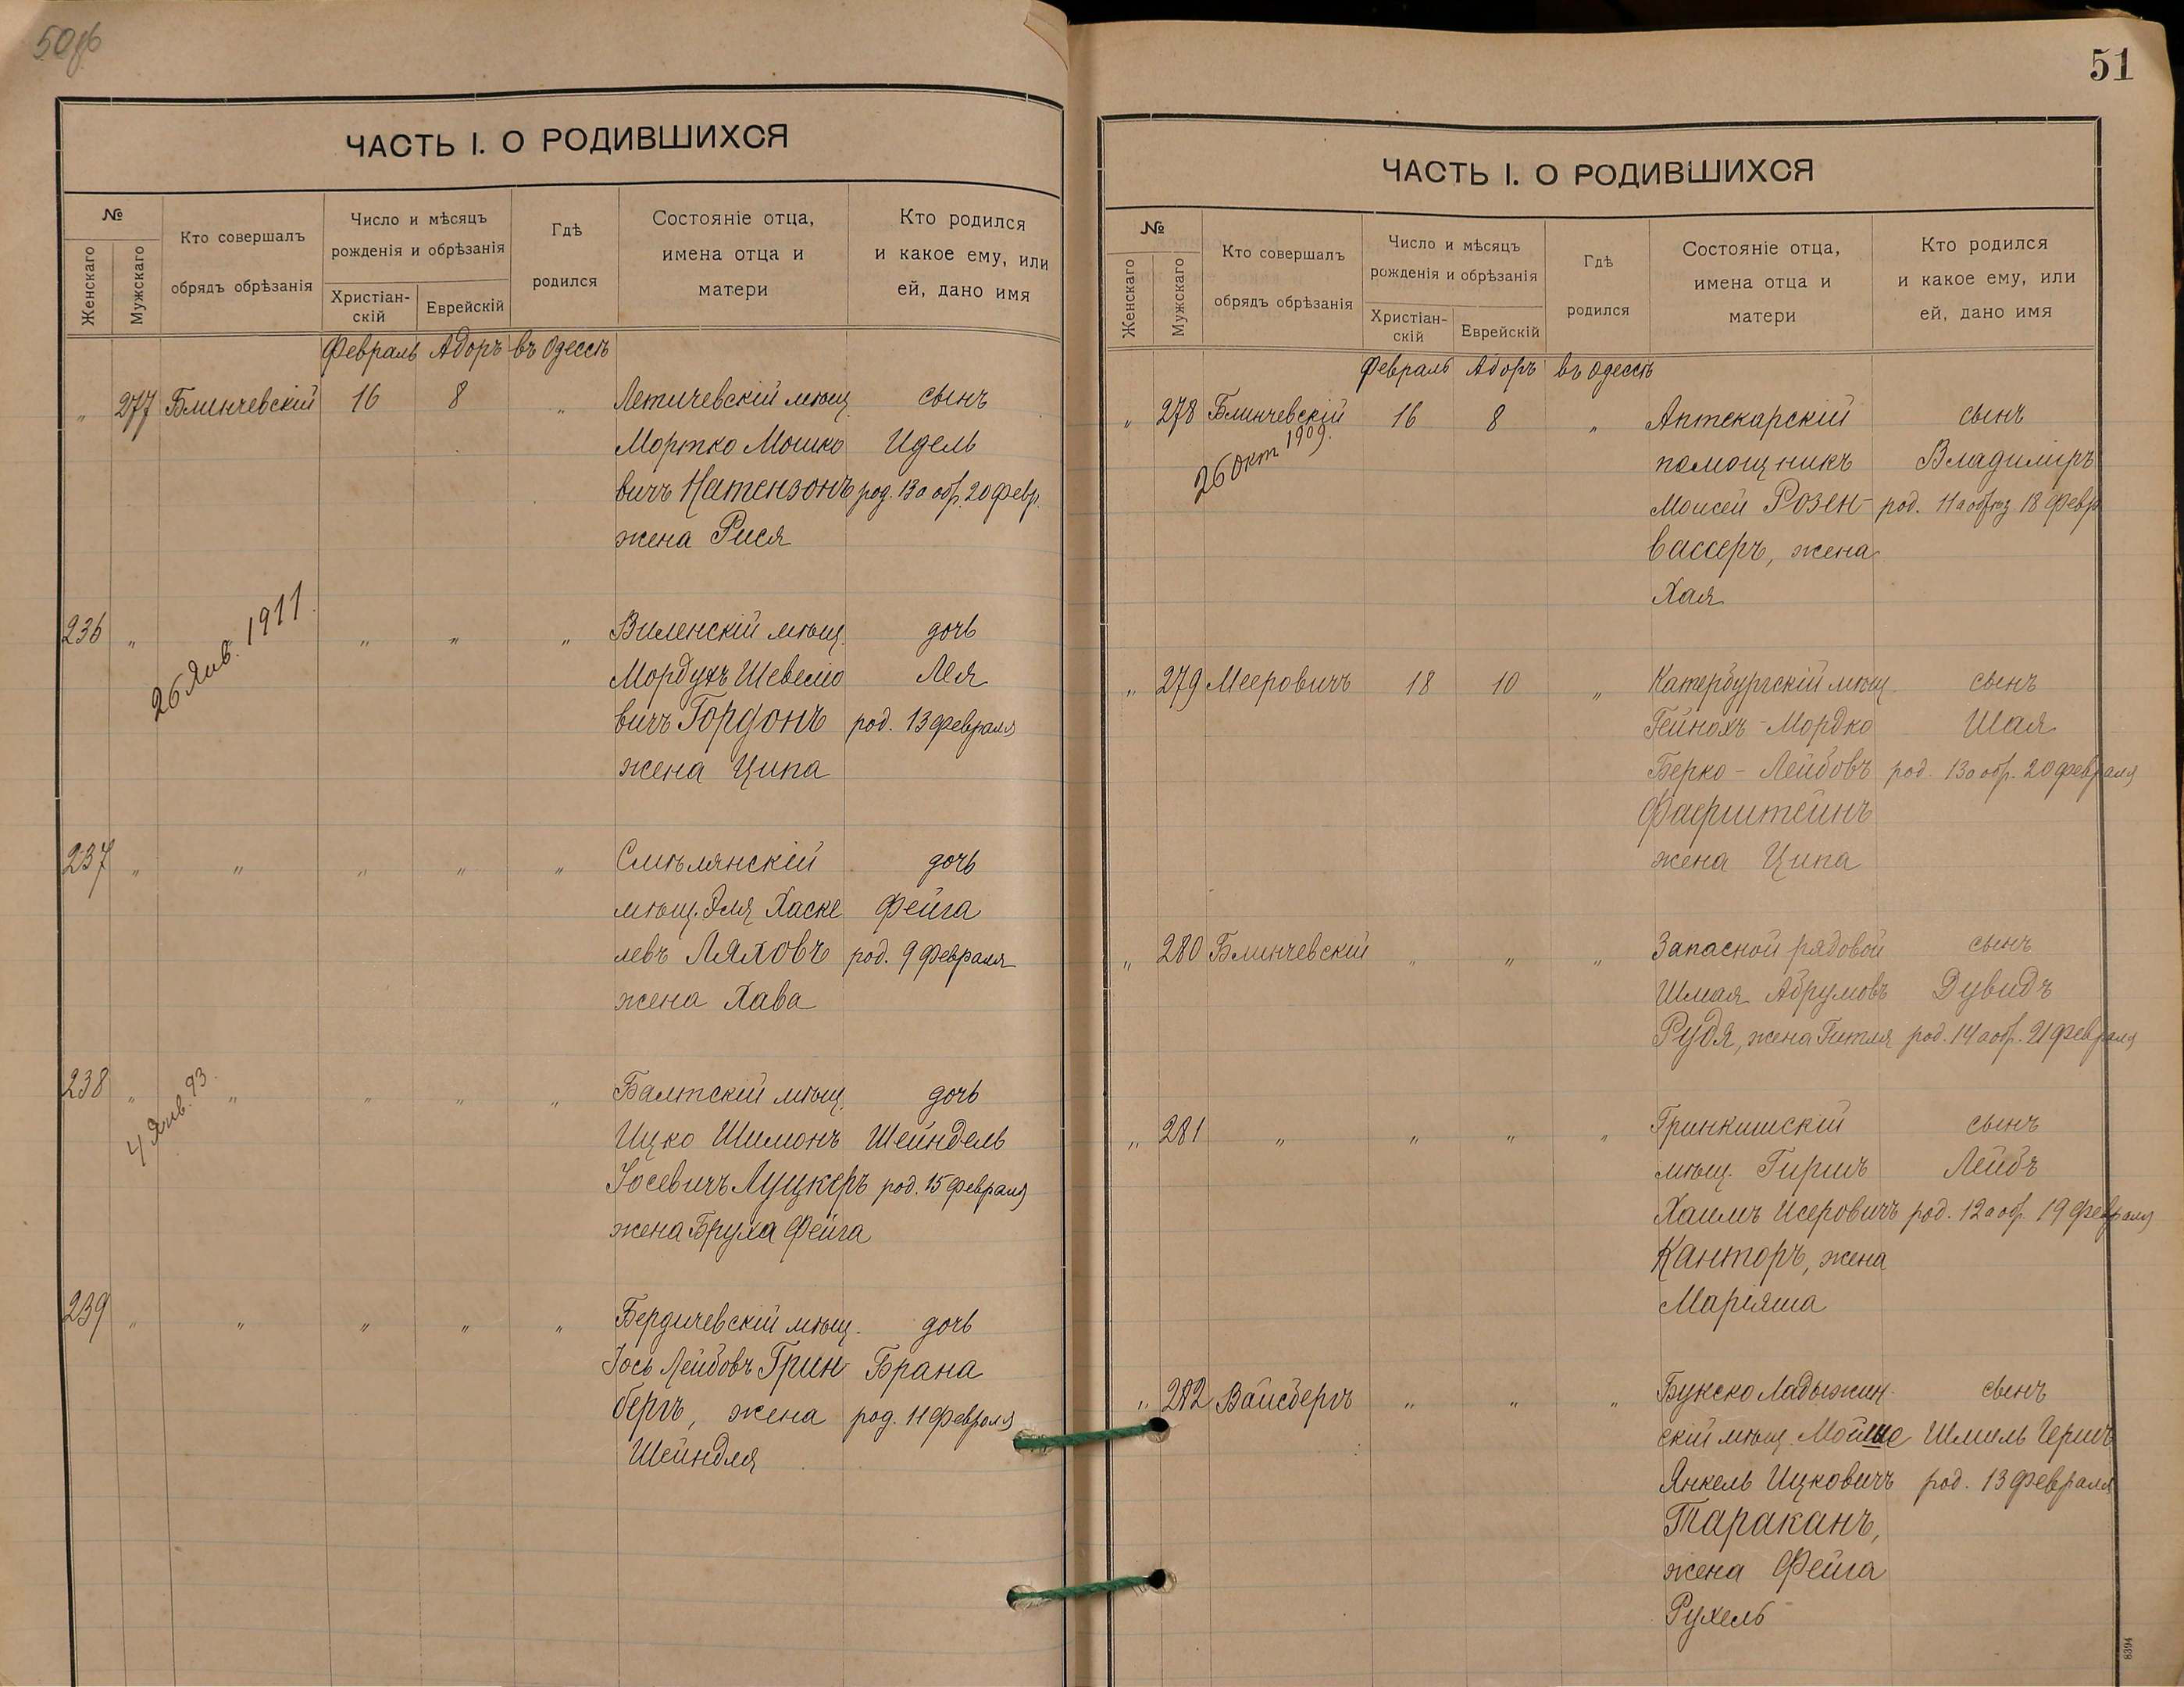 50об
ЧАСТЬ I. О РОДИВШИХСЯ
№
Женскаго
Мужскаго
Кто совершалъ
обрядъ обрѣзанія
Число и мѣсяцъ
рожденія и обрѣзанія
Христіан-
скій
Еврейскій
Гдѣ
родился
Состояніе отца,
имена отца и
матери
Кто родился
и какое ему, или
ей, дано имя
Февраль Адоръ въ Одессѣ
„ 277 Блинчевскій 16 8 „ Летичевскій мѣщ. сынъ
Мортко Мошко Идель
вичъ Натензонъ род. 13 а обр. 20 февр.
жена Рися
236 „ 26 Янв. 1911. „ „ „ Виленскій мѣщ. дочь
Мордухъ Шевелио Лея
вичъ Гордонъ род. 13 февраля
жена Ципа
237 „ „ „ „ „ Смѣлянскій дочь
мѣщ. Эля Хаске Фейга
левъ Ляховъ род. 9 февраля
жена Хава
238 „ 4 Янв. 93. „ „ „ „ Балтскій мѣщ. дочь
Ицко Шимонъ Шейндель
Іосевичъ Луцкеръ род. 15 февраля
жена Бруха Фейга
239 „ „ „ „ „ Бердичевскій мѣщ. дочь
Іось Лейбовъ Грин Брана
бергъ, жена род. 11 февраля
Шейндля
51
ЧАСТЬ I. О РОДИВШИХСЯ
№
Женскаго
Мужскаго
Кто совершалъ
обрядъ обрѣзанія
Число и мѣсяцъ
рожденія и обрѣзанія
Христіан-
скій
Еврейскій
Гдѣ
родился
Состояніе отца,
имена отца и
матери
Кто родился
и какое ему, или
ей, дано имя
Февраль Адоръ въ Одессѣ
„ 278 Блинчевскій 16 8 „ Аптекарскій сынъ
26 окт 1909. помощникъ Владиміръ
Моисей Розен- род. 11 а обрѣз 18 февр
вассеръ, жена
Хая
„ 279 Мееровичъ 18 10 „ Катербургскій мѣщ. сынъ
Гейнохъ-Мордко Шая
Берко-Лейбовъ род. 13 а обр. 20 февраля
Фаерштейнъ
жена Ципа
„ 280 Блинчевскій „ „ „ Запасной рядовой сынъ
Шмая Абрумовъ Дувидъ
Рудя, жена Гитля род. 14 а обр. 21 февраля
„ 281 „ „ „ „ Гринкишскій сынъ
мѣщ. Гиршъ Лейбъ
Хаимъ Исеровичъ род. 12 а обр. 19 февраля
Канторъ, жена
Маріяша
„ 282 Вайсбергъ „ „ „ Букско Ладыжин- сынъ
скій мѣщ. Мойше Шмиль Гершъ
Янкель Ицковичъ род. 13 февраля
Тараканъ,
жена Фейга
Рухель
8394